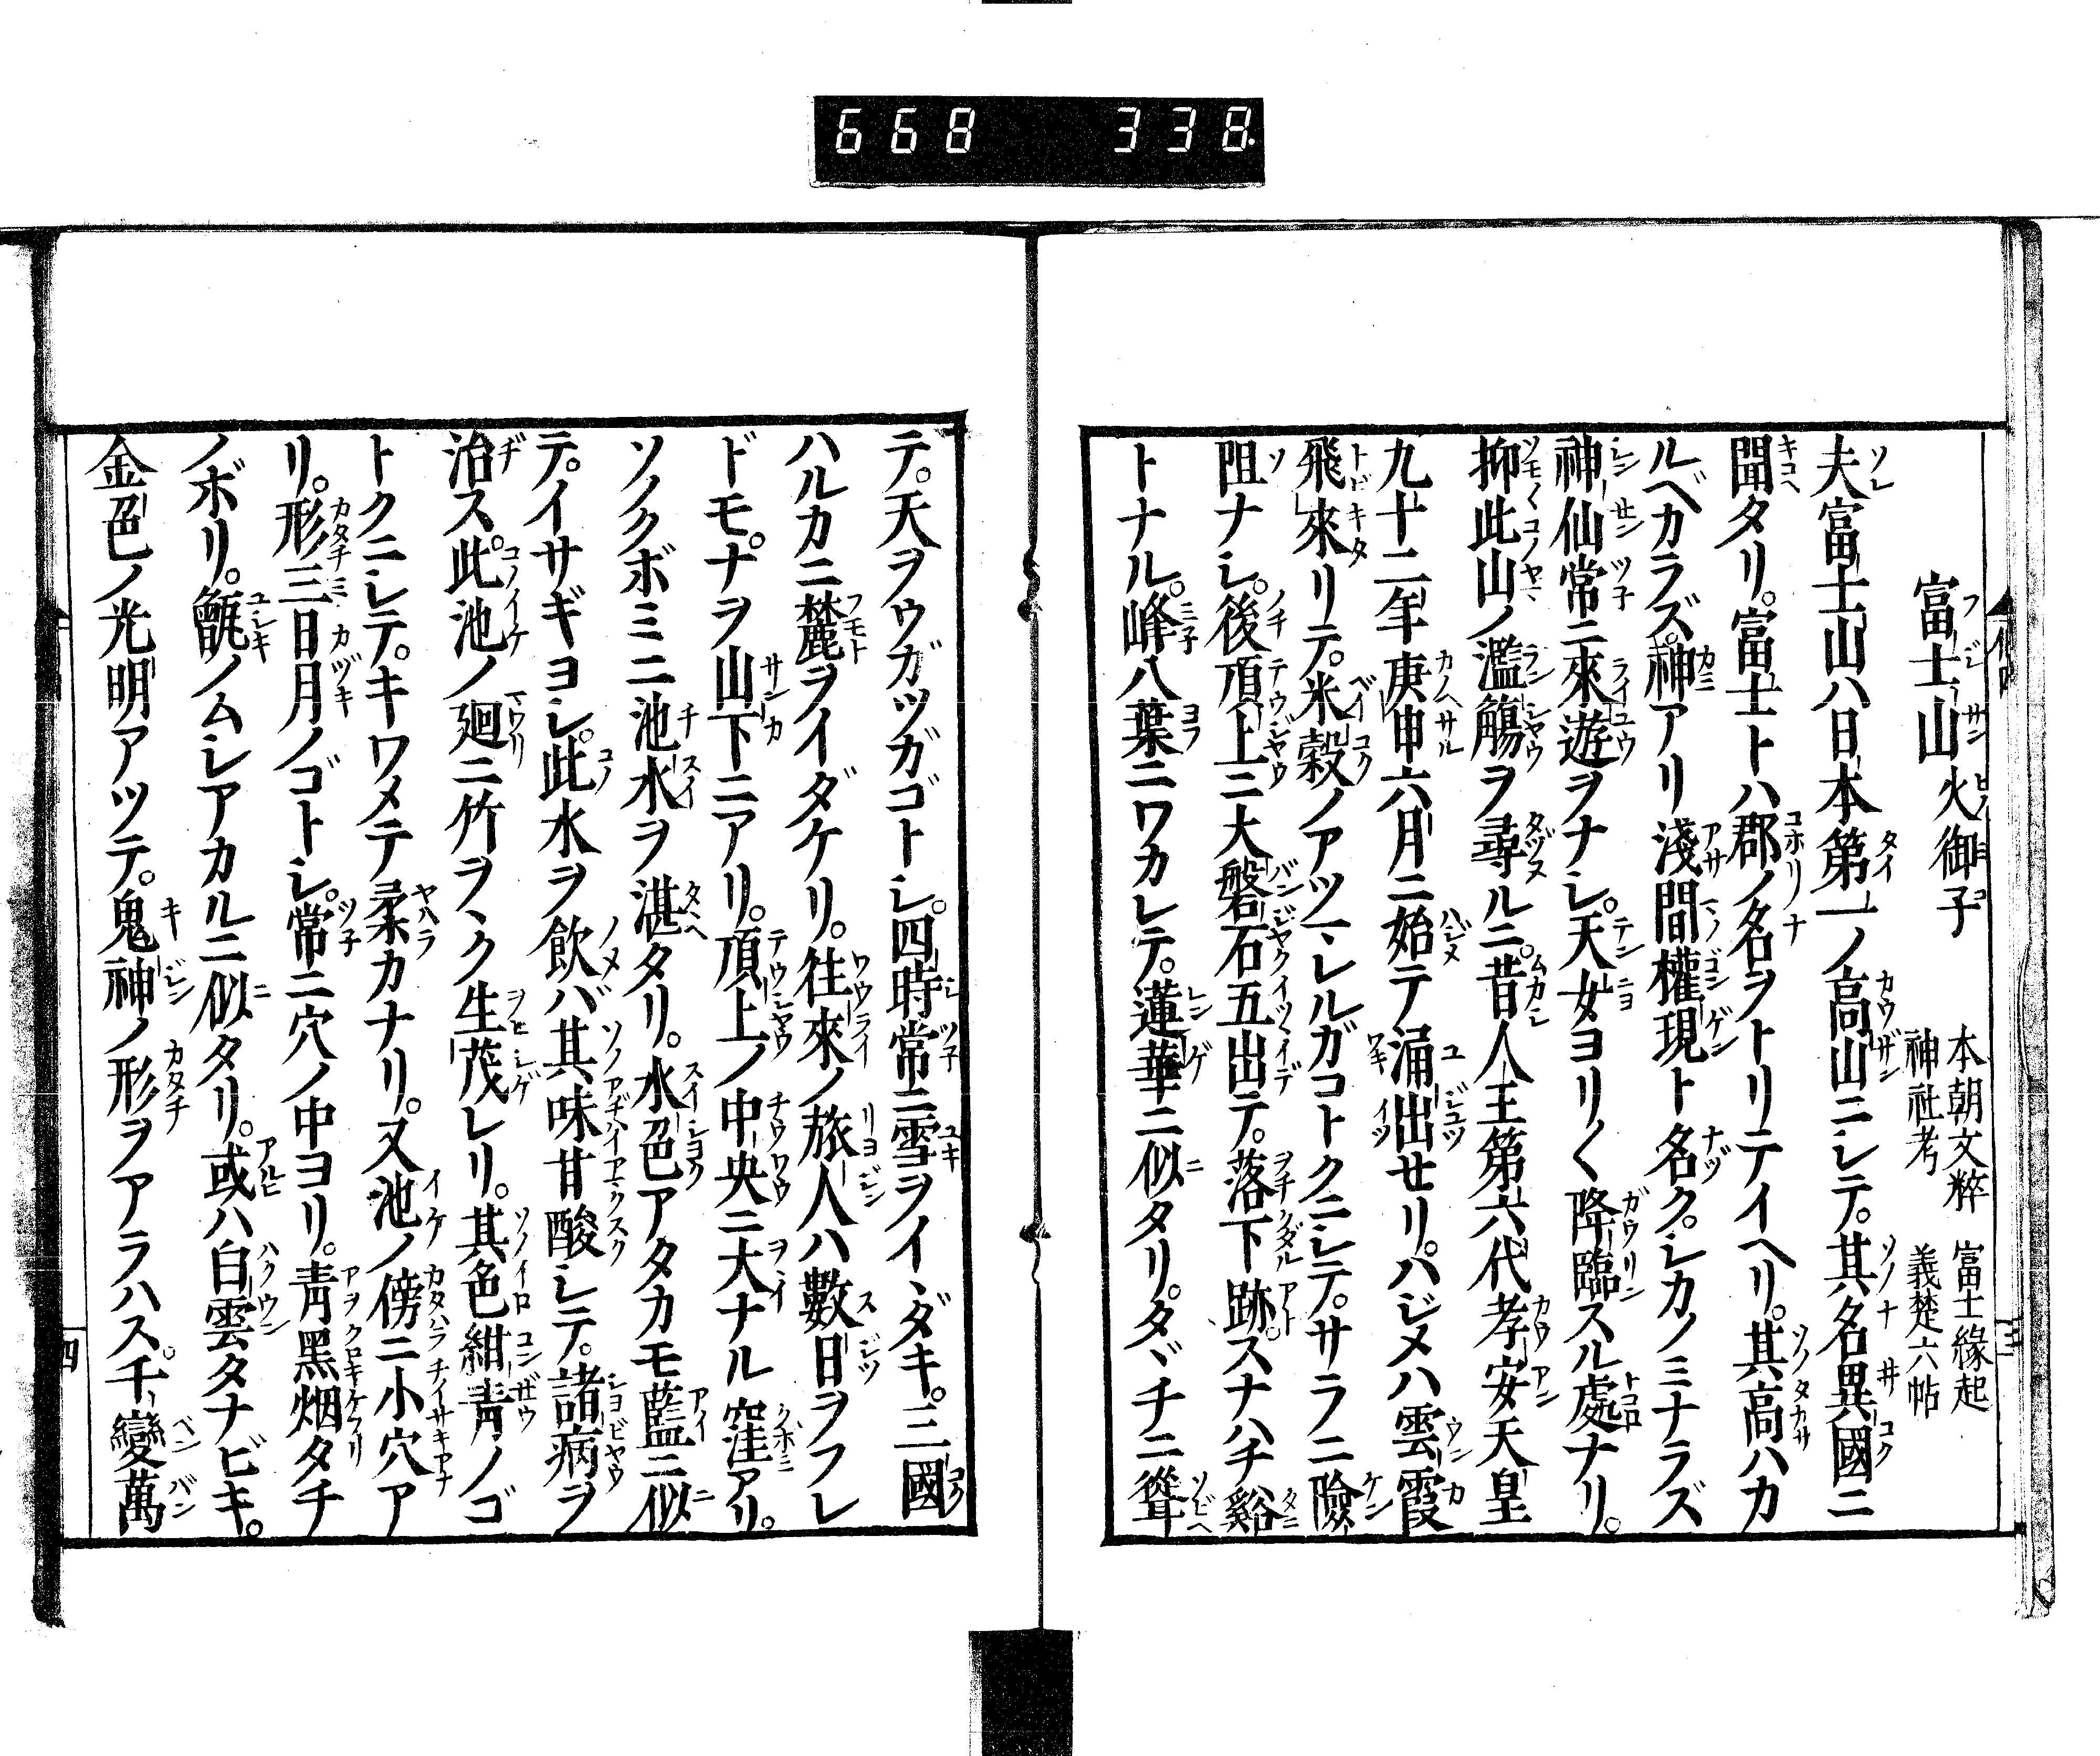 668 338
富士山火御子 本朝文粹 富士緣起
神社考 義楚六帖
夫富士山ハ日本第一ノ高山ニシテ。其名異國ニ
聞タリ。富士トハ郡ノ名ヲトリテイヘリ。其高ハカ
ルベカラズ。神アリ淺間權現ト名ク。シカノミナラズ
神仙常ニ來遊ヲナシ。天女ヨリ〱降臨スル處ナリ。
抑此山ノ濫觴ヲ尋ルニ。昔人王第六代孝安天皇
九十二年庚申六月ニ始テ涌出セリ。ハジメハ雲霞
飛來リテ。米穀ノアツマレルガコトクニシテ。サラニ險
阻ナシ。後頂上ニ大磐石五出テ。落下跡。スナハチ谿
トナル。峰八葉ニワカレテ。蓮華ニ似タリ。タヾチニ聳
テ。天ヲウガツガゴトシ。四時常ニ雪ヲイヽダキ。三國
ハルカニ麓ヲイダケリ。往來ノ旅人ハ數日ヲフレ
ドモ。ナヲ山下ニアリ。頂上ノ中央ニ大ナル窪アリ。
ソノクボミニ池水ヲ湛タリ。水色アタカモ藍ニ似
テ。イサギヨシ。此水ヲ飲バ其味甘酸シテ。諸病ヲ
治ス。此池ノ廻ニ竹ヲヽク生茂レリ。其色紺靑ノゴ
トクニシテ。キワメテ柔カナリ。又池ノ傍ニ小穴ア
リ。形三日月ノゴトシ。常ニ穴ノ中ヨリ。靑黑烟タチ
ノボリ。甑ノムシアカルニ似タリ。或ハ白雲タナビキ。
金色ノ光明アツテ。鬼神ノ形ヲアラハス。千變萬
四